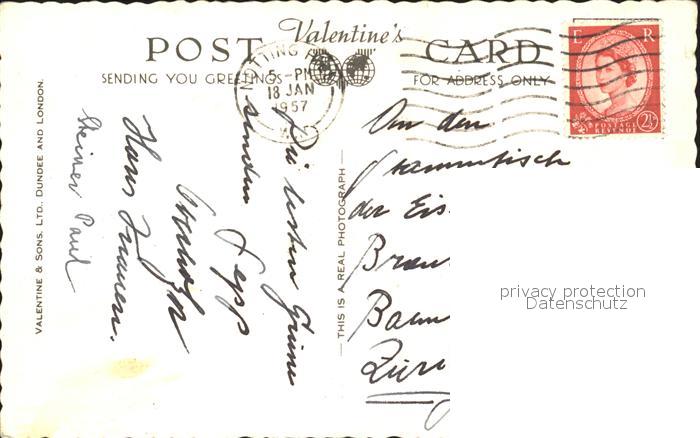 Valentine's
POST CARD
SENDING YOU GREETINGS
FOR ADDRESS ONLY
NOTTING
5 - PM
18 JAN
1957
E R
POSTAGE
REVENUE
2½
VALENTINE & SONS, LTD., DUNDEE AND LONDON.
THIS IS A REAL PHOTOGRAPH
besten
senden Sepp
Hans
Steiner Paul
An den
Stammtisch
der Eis
Brau
Zür
privacy protection
Datenschutz